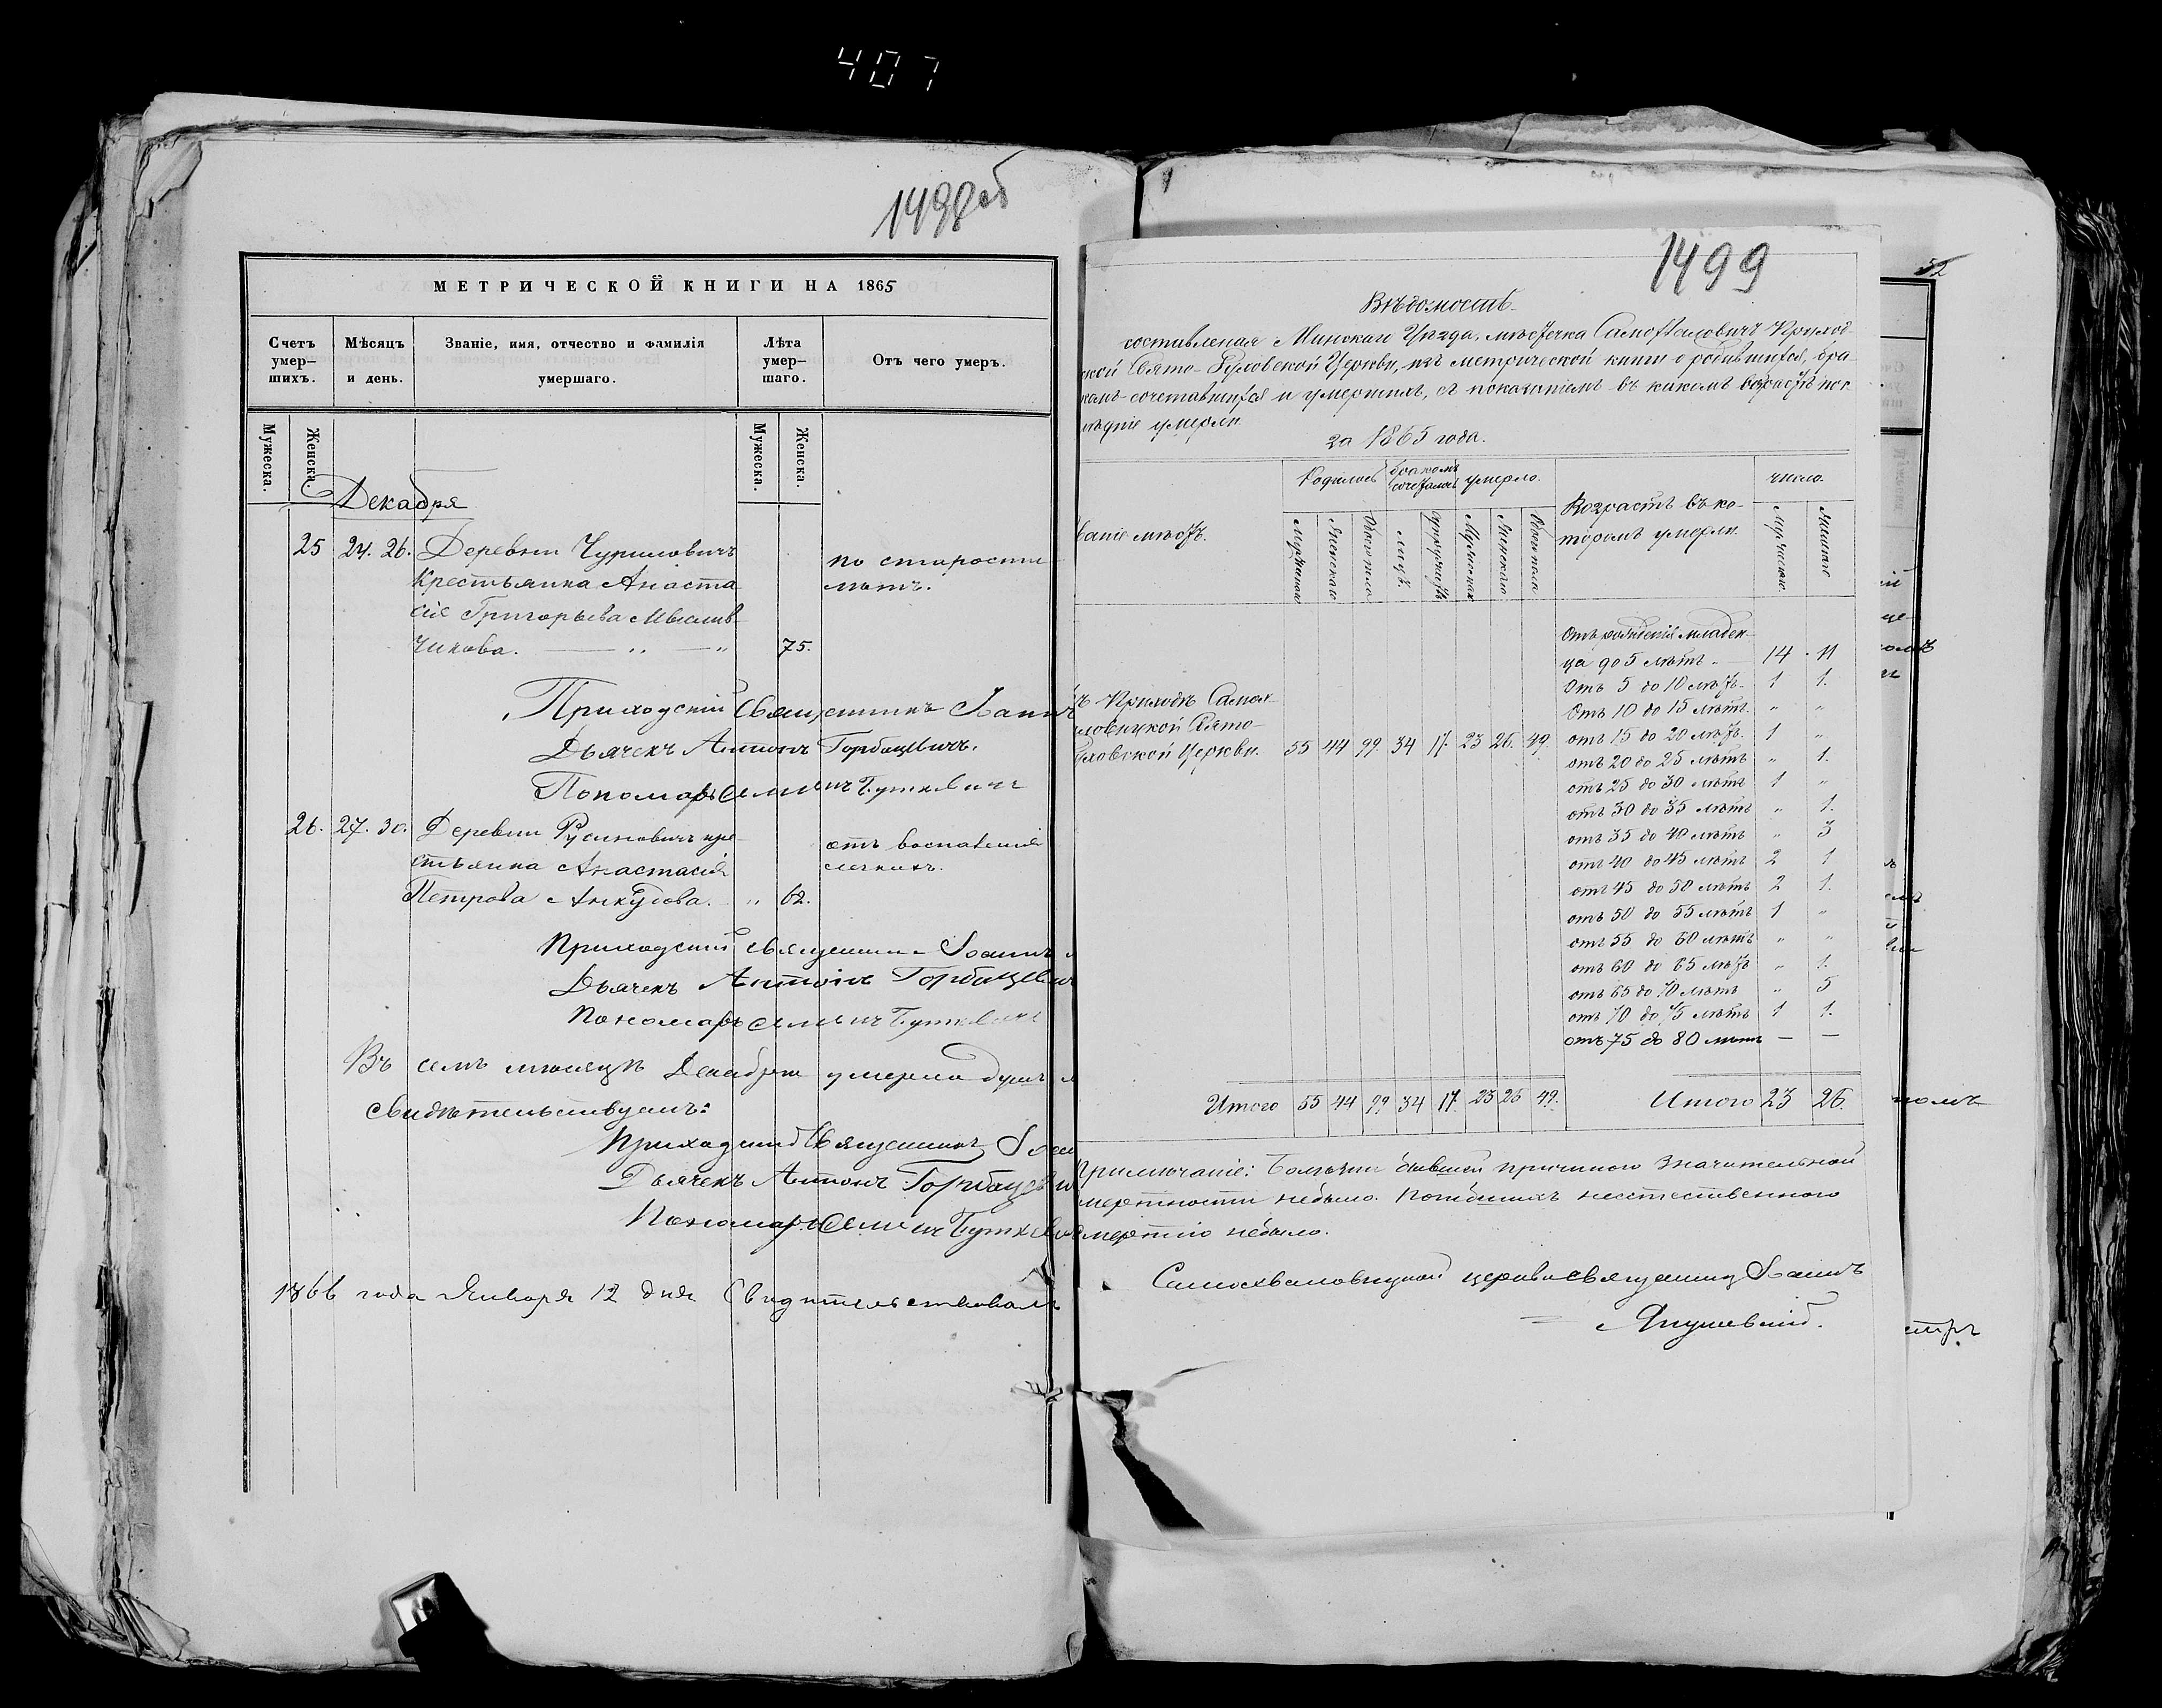 407
1498об
МЕТРИЧЕСКОЙ КНИГИ НА 1865
Счетъ умер-шихъ.
Мѣсяцъ и день.
Званіе, имя, отчество и фамилія умершаго.
Лѣта умер-шаго.
Отъ чего умеръ.
Мужеска.
Женска.
Мужеска.
Женска.
Декабря
25 24. 26. Деревни Чуриловичъ
по старости
крестьянка Анаста
лѣтъ.
сія Григорьева Мыслив-
чикова. 75.
Приходскій Священникъ Іоаннъ
Дьячекъ Антонъ Горбацевичъ.
Пономарь Семенъ Буткевичъ
26. 27. 30. Деревни Русиновичъ кре-
отъ воспаленія
стьянка Анастасія
легкихъ.
Петрова Анкудова. " 62.
Приходскій священникъ Іоаннъ
Дьячекъ Антонъ Горбацевичъ
Пономарь Семенъ Буткевичъ
Въ семъ мѣсяцѣ Декабрѣ умерло душъ
свидѣтельствуемъ:
Приходскій Священникъ Іоан
Дьячекъ Антонъ Горбацеви
Пономарь Семенъ Буткеви
1866 года Января 12 дня Свидѣтельствовалъ
1499
52
Вѣдомость
составленая Минскаго Уѣзда, мѣстечка Самохваловичъ Приход-
ской Свято-Духовской Церкви, изъ метрической книги о родившихся, бра-
комъ сочетавшихся и умершихъ, съ показаніемъ въ какомъ возрастѣ пос-
лѣдніе умерли
за 1865 года.
Родилось
бракомъ сочеталось
умерло.
Возрастъ въ ко-
торомъ умерли.
число.
ваніе мѣстъ.
Мужескаго
Женскаго
Обоего пола
лицъ.
супружествъ
Мужескаго
Женскаго
Обоего пола
Мужескаго.
Женскаго
Отъ рожденія младен-
ца до 5 лѣтъ 14 11
Отъ 5 до 10 лѣтъ 1 1.
Отъ 10 до 15 лѣтъ " "
отъ 15 до 20 лѣтъ 1 "
отъ 20 до 25 лѣтъ " 1.
отъ 25 до 30 лѣтъ 1 "
отъ 30 до 35 лѣтъ " 1.
отъ 35 до 40 лѣтъ " 3
отъ 40 до 45 лѣтъ 2 1
отъ 45 до 50 лѣтъ 2 1.
отъ 50 до 55 лѣтъ 1 "
отъ 55 до 60 лѣтъ " "
отъ 60 до 65 лѣтъ " 1.
отъ 65 до 70 лѣтъ " 5
отъ 70 до 75 лѣтъ 1 1.
отъ 75 до 80 лѣтъ — —
ъ Приходѣ Самох
валовицкой Свято-
Духовской Церкви. 55 44 99 34 17. 23 26. 49.
Итого 55 44 99 34 17. 23 26 49.
Итого 23 26.
Примѣчаніе: Болѣзни бывшей причиною значительной
смертности небыло. Погибшихъ неестественною
смертію небыло.
Самохваловицкой церкви священникъ Іоаннъ
Янушевскій.